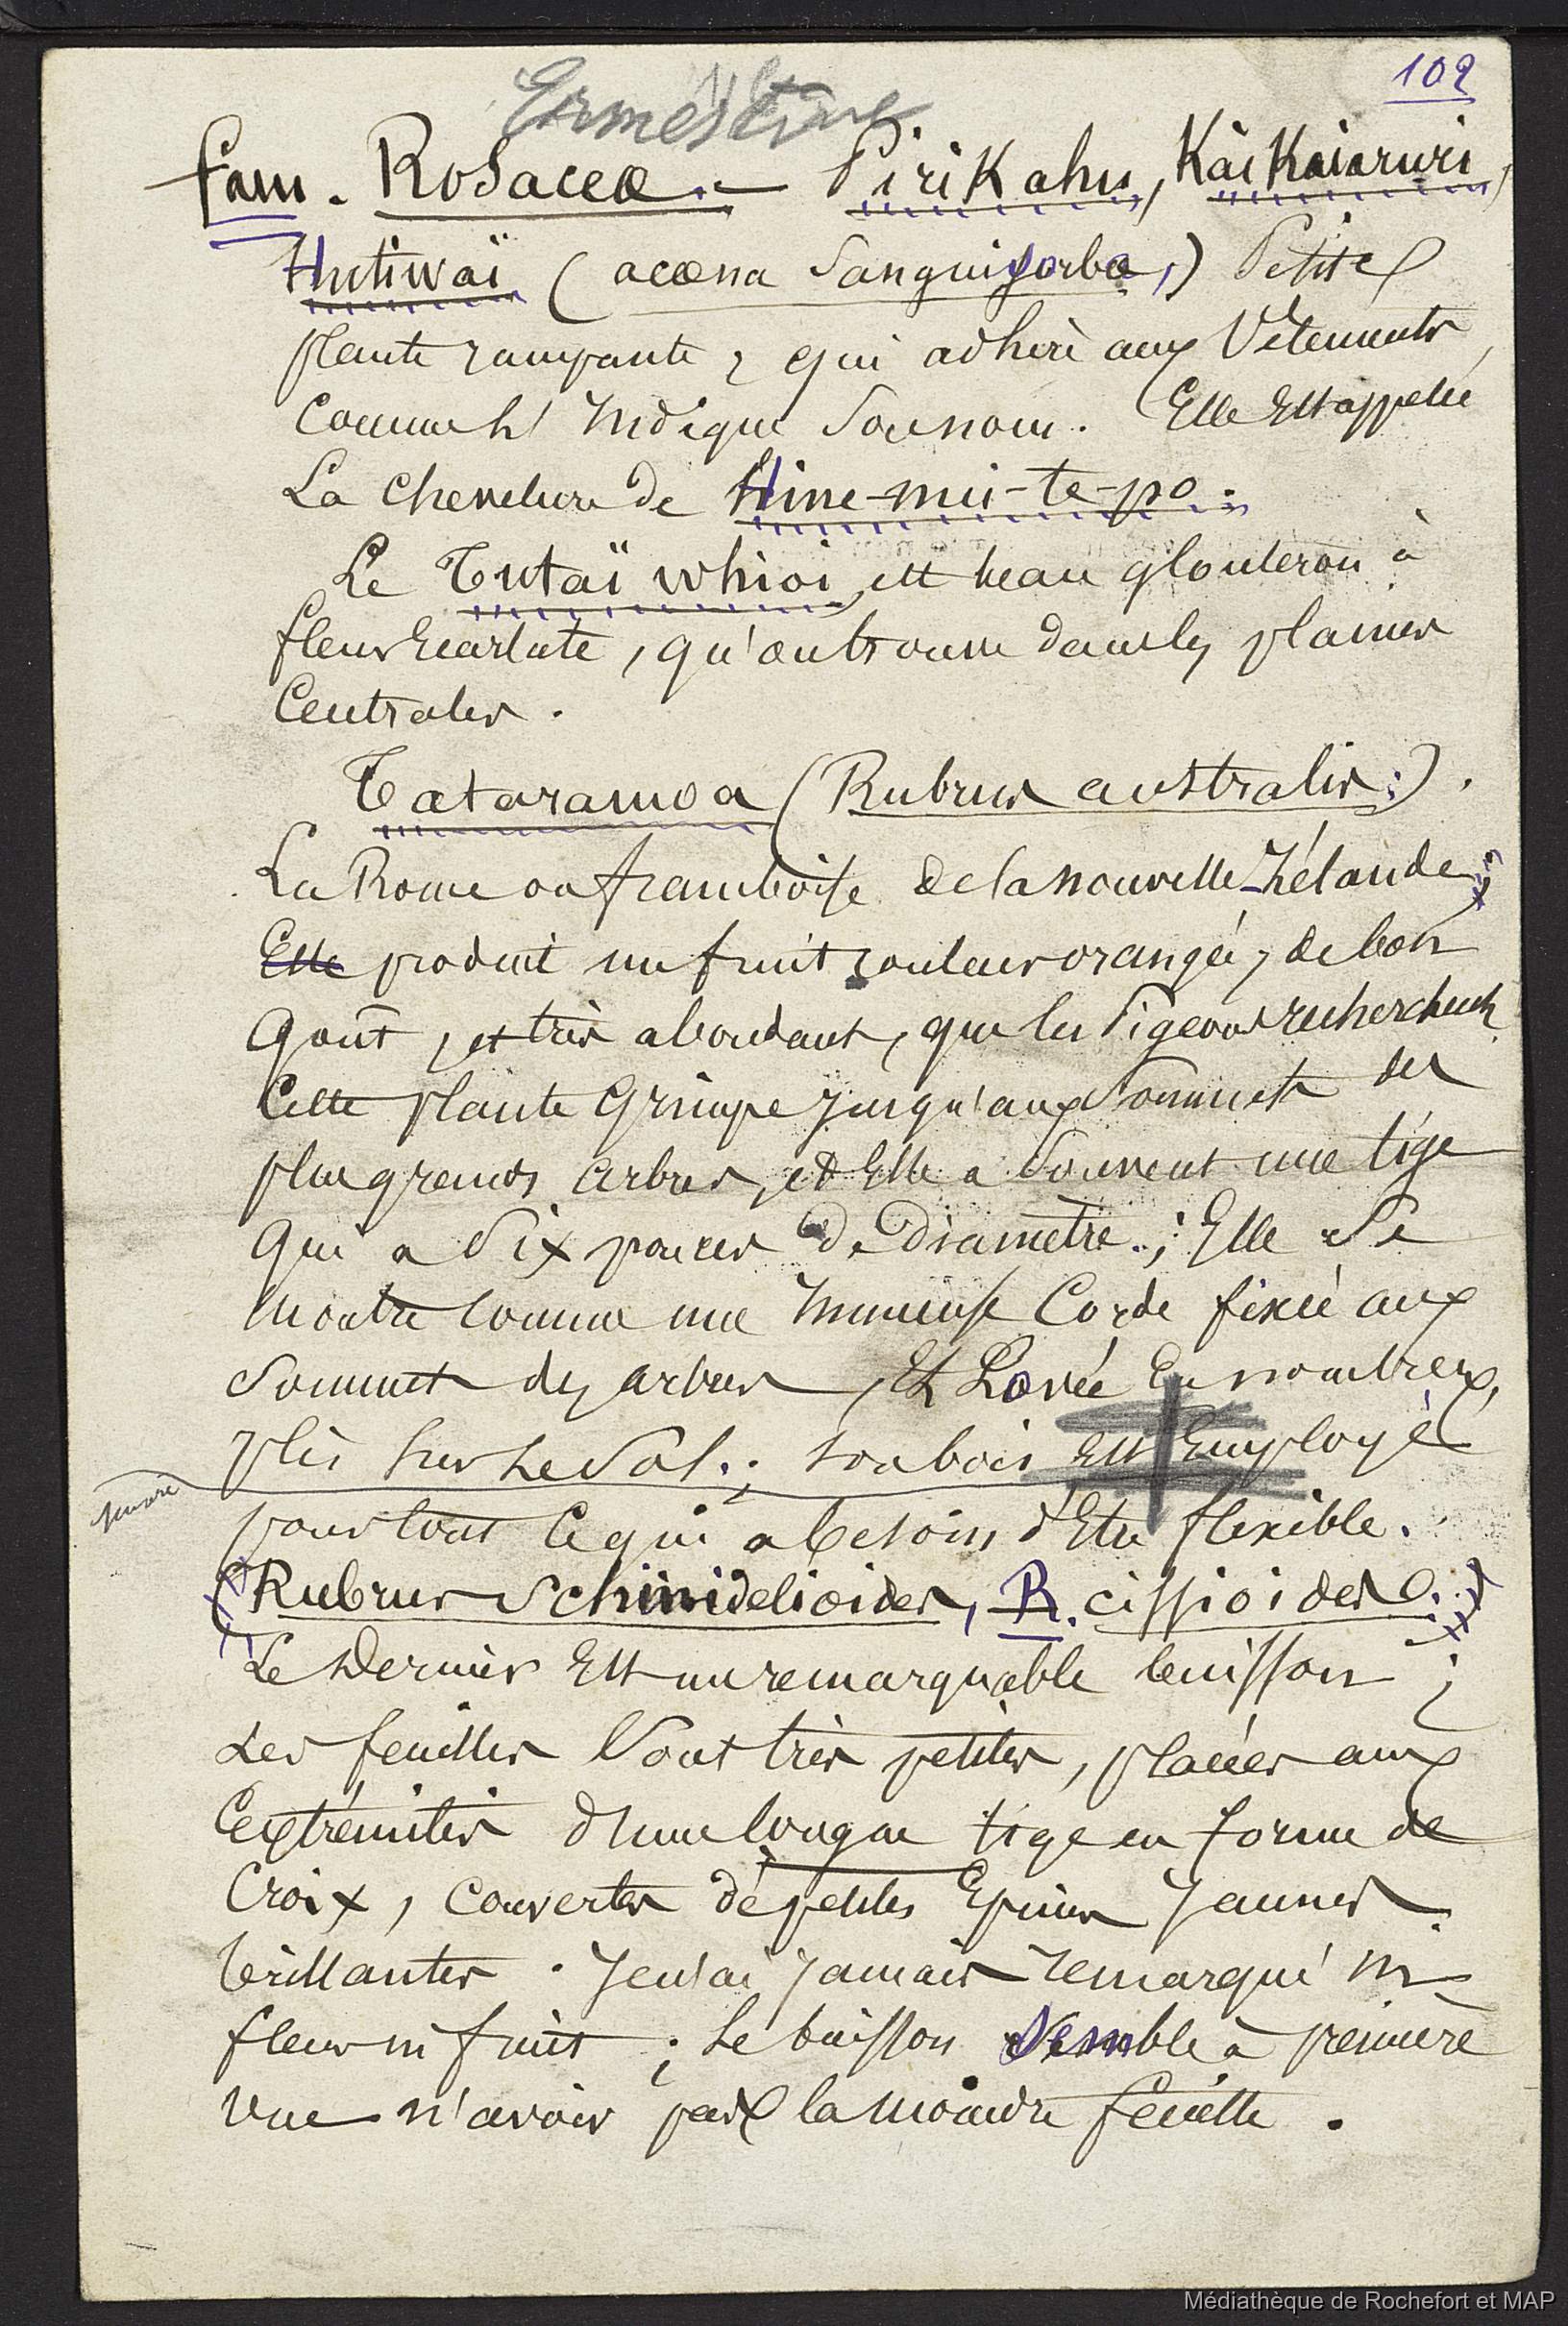 109
Ermestine
fam. Rosaceæ. — Pirikahu, Kaikaiaruri,
Hutiwaï (acœna Sanguisorba,) Petite
plante rampante, qui adhère aux Vêtements,
Comme l'Indique Son nom. Elle Est appelée
La Chevelure de Hine-mui-te-po.
Le Tutaï whioi, est beau glouteron à
fleur Ecarlate, qu'on trouve dans les plaines
Centrales.
Tataramoa (Rubrus australis:).
La Ronce ou framboise de la nouvelle-Zélande;
Elle produit un fruit couleur orangée, de bon
Goût, et très abondant, que les Pigeons recherchent.
Cette plante Grimpe Jusqu'aux Sommets des
plus grands Arbres, et Elle a Souvent une tige
Qui a Six pouces de Diamètre.; Elle Se
Montre Comme une Immense Corde fixée aux
Sommets des arbres, Et Lovée En nombreux
plis Sur Le Sol.; son bois Est Employé
pour tout Ce qui a besoin d'Etre flexible.
(Rubrus Schmidelioides, R. cissioides C.)
Le Dernier Est un remarquable buisson;
Les feuilles Sont très petites, placées aux
Extrémités d'une longue tige en forme de
Croix, Couvertes de petites Epines Jaunes
brillantes. Je n'ai Jamais remarqué ni
fleur ni fruit; Le buisson Semble à première
Vue n'avoir pas la moindre feuille.
Médiathèque de Rochefort et MAP